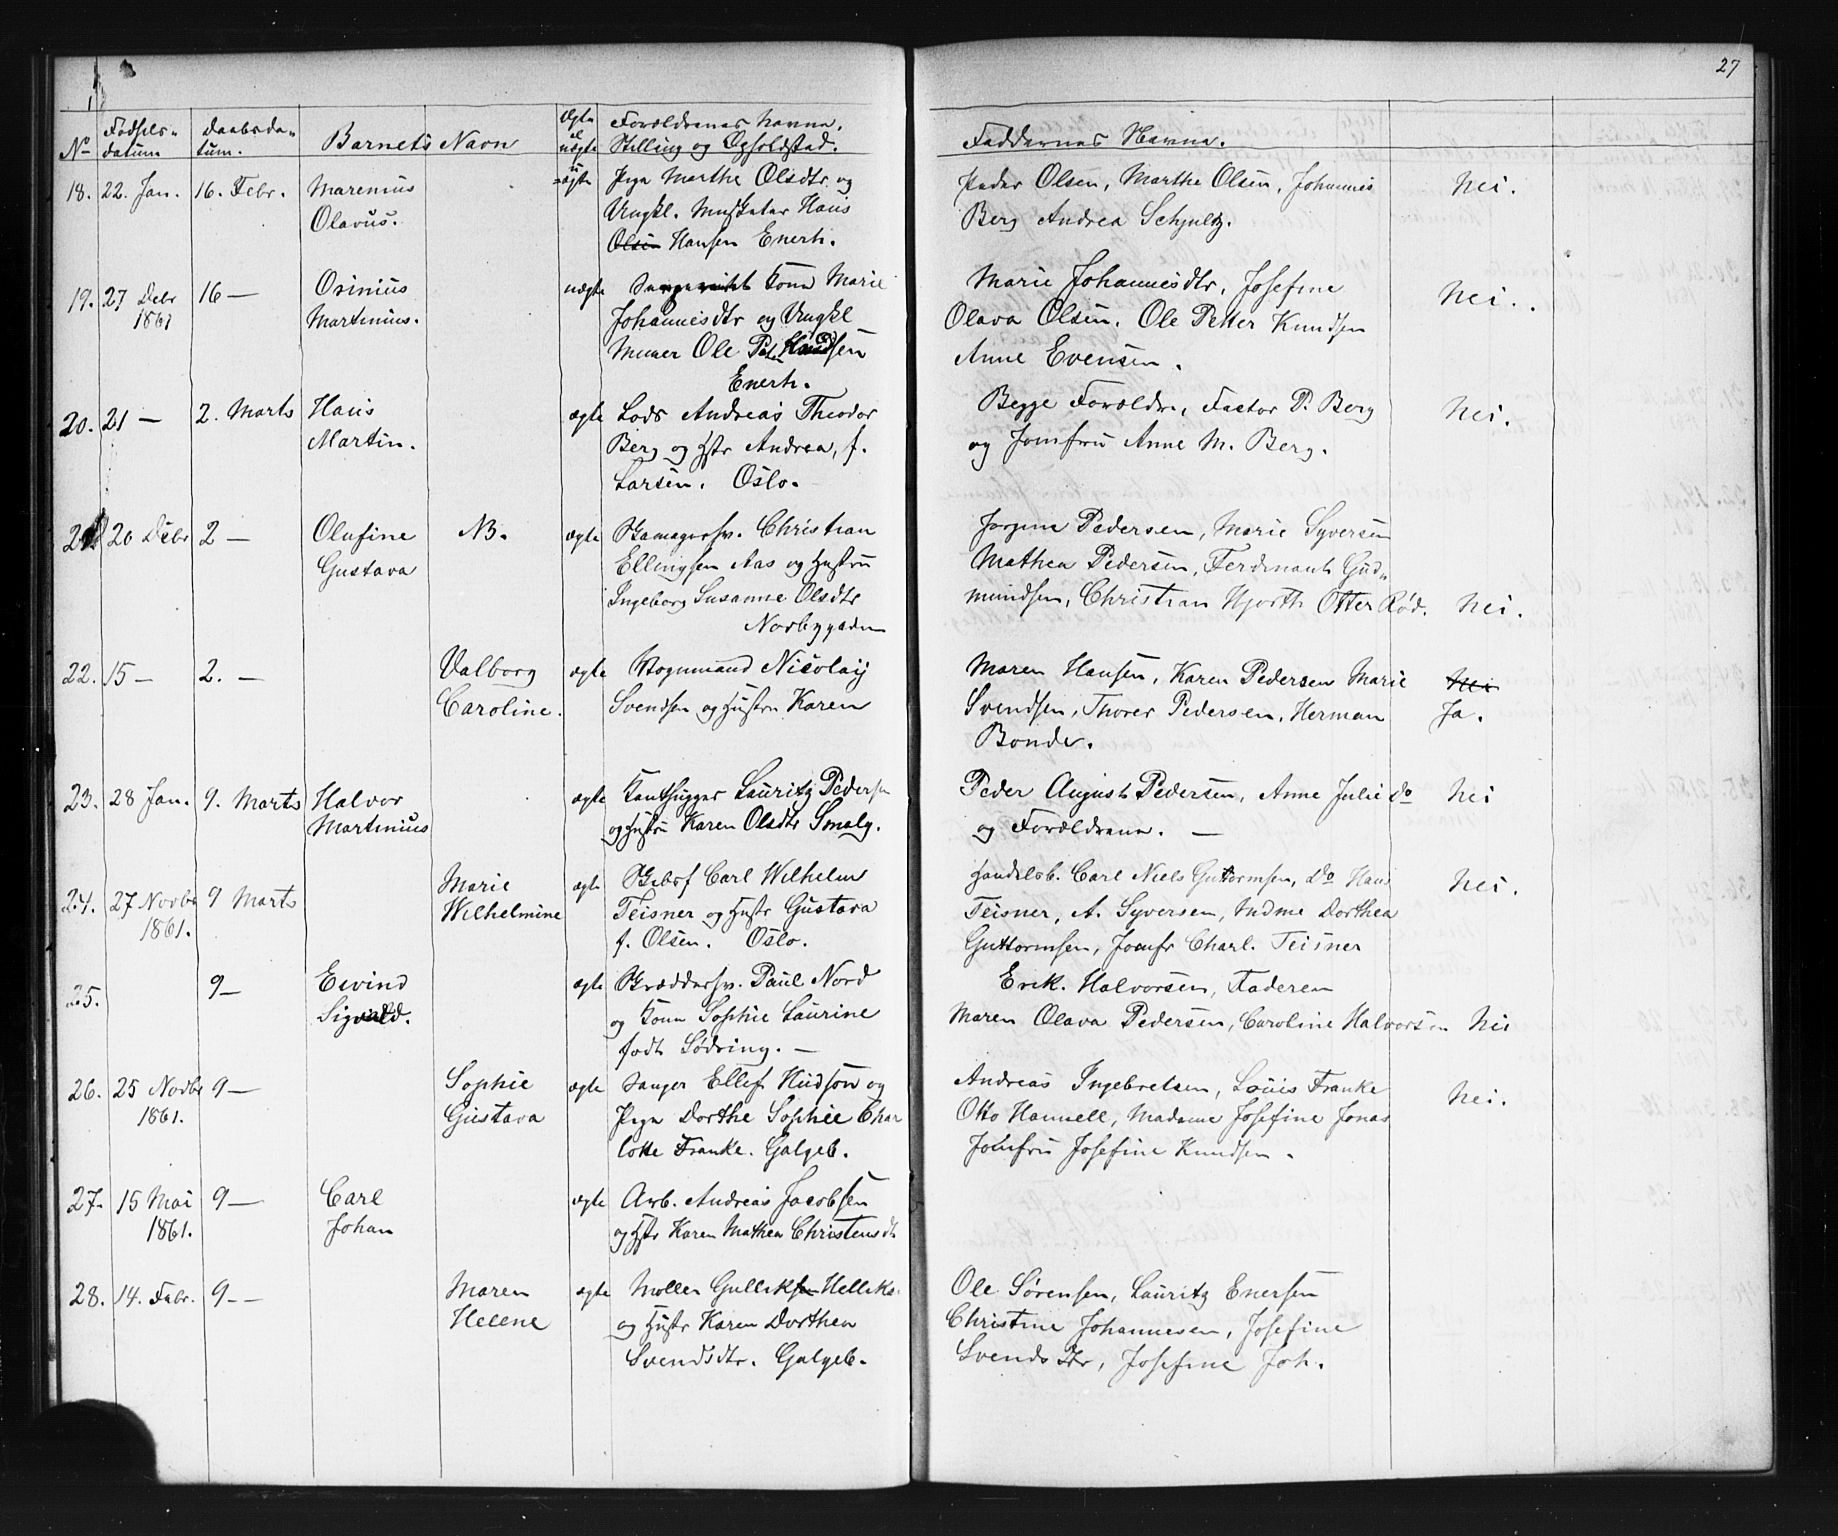 27
No Fødsels- datum Daabsda- tum. Barnets Navn Ægte el uægte Forældrenes Navne, Stilling og Opholdsted. Faddernes Navne.
18. 22. Jan. 16. Febr. Marenius uægte Pige Marthe Olsdtr og Peder Olsen, Marthe Olsen, Johannes Nei.
Olavus. Ungkl. Musketer Hans Berg Andrea Schjultz.
Olsen Hansen Enerh.
19. 27 Debr 16 — Osinius uægte Kone Marie Marie Johannesdtr, Josefine Nei.
1861 Martinius. Johannesdtr og Ungkl Olava Olsen. Ole Petter Knudsen
Murer Ole Pet. Knudsen Anne Evensen.
Enerh.
20. 21 — 2. Marts Hans ægte Lods Andreas Theodor Begge Forældre, Factor P. Berg Nei.
Martin. Berg og Hstr Andrea, f. og Jomfru Anne M. Berg.
Larsen. Oslo.
21 20 Debr 2 — Olufine NB. ægte Christian Jørgine Pedersen, Marie Syversen
Gustava Ellingsen Aas og Hustru Mathea Pedersen, Ferdinant Gud-
Ingeborg Susanne Olsdtr mundsen, Christian Hjorth Otter Rød. Nei.
Norbygaden
22. 15 — 2. — Valborg ægte Bognmand Nicolaij Maren Hansen, Karen Pedersen Marie Nei
Caroline. Svendsen og Hustru Karen Svendsen, Thorer Pedersen, Herman Ja.
Bonde.
23. 28 Jan. 9. Marts Halvor ægte Kanthugger Lauritz Pedersen Peder August Pedersen, Anne Julie Do Nei
Martinius og Hustru Karen Olsdtr Smalg. og Forældrene. —
24. 27 Novbr 9 Marts Marie ægte Carl Wilhelm Handelsb. Carl Niels Guttormsen, Do Hans Nei.
1861. Wilhelmine Teisner og Hustr Gustava Teisner, A. Syversen, Mdme Dorthea
f. Olsen. Oslo. Guttormsen, Jomfr Charl. Teisner
25. 9 — Eivind ægte Skræddersv. Paul Nord Erik Halvorsen, Faderen
Sigvald. og Kone Sophie Laurine Maren Olava Pedersen, Caroline Halvorsen Nei
født Sødring. —
26. 25 Novbr 9 — Sophie ægte Sanger Ellef Hudson og Andreas Ingebretsen, Louis Franke Nei.
1861. Gustava Pige Dorthe Sophie Char Otto Hannell, Madame Josefine Jonas
lotte Franke. Galgeb. Jomfru Josefine Knudsen.
27. 15 Mai 9 — Carl ægte Arb. Andreas Jacobsen
1861. Johan og Hstr Karen Mathea Christensdt
28. 14. Febr. 9 — Maren ægte Møller Gulliksen Helliks. Ole Sørensen, Lauritz Enersen
Helene og Hustr Karen Dorthea Christine Johannesen, Josefine
Svendsdtr. Galgeb. Svendsdtr, Josefine Joh.